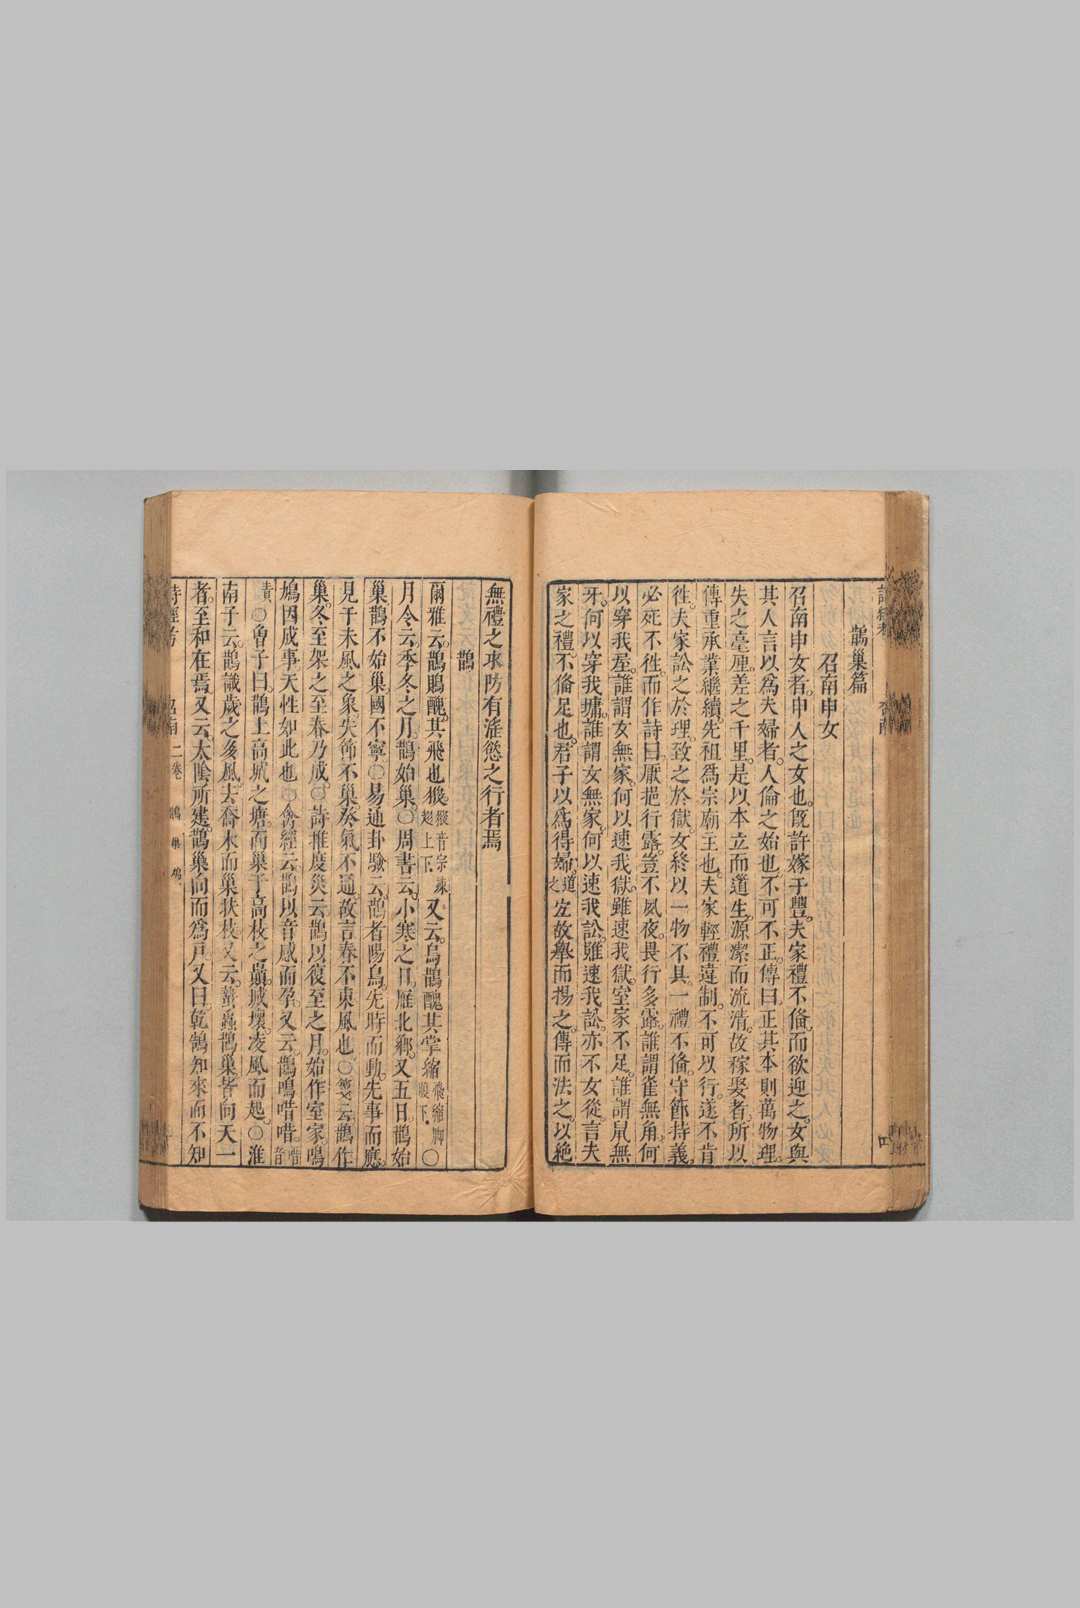 鵲巢篇
召南申女
召南申女者。申人之女也。旣許嫁于豐。夫家禮不備。而欲迎之。女與
其人言以爲夫婦者。人倫之始也。不可不正。傳曰。正其本則萬物理。
失之毫厘。差之千里。是以本立而道生。源潔而流清。故嫁娶者。所以
傳重承業繼續先祖爲宗廟主也。夫家輕禮違制。不可以行。遂不肯
徃。夫家訟之於理。致之於獄。女終以一物不具。一禮不備。守節持義。
必死不徃。而作詩曰。厭挹行露。豈不夙夜。畏行多露。誰謂雀無角。何
以穿我屋。誰謂女無家。何以速我獄。雖速我獄。室家不足。誰謂鼠無
牙。何以穿我墉。誰謂女無家。何以速我訟。雖速我訟。亦不女從。言夫
家之禮不備足也。君子以爲得婦道之宜。故舉而揚之。傳而法之。以絕
無禮之求。防有淫慾之行者焉
鵲
爾雅云。鵲鵙醜。其飛也猣。猣音宗竦翅上下。又云。烏鵲醜。其掌縮。飛縮脚腹下。〇
月令云。季冬之月。鵲始巢。〇周書云。小寒之日。雁北鄉。又五日。鵲始
巢。鵲不始巢。國不寧。〇易通卦驗云。鵲者陽鳥。先時而動。先事而應。
見于未風之象。失節不巢。癸氣不通。故言春不東風也。〇箋云。鵲作
巢。冬至架之。至春乃成。〇詩推度災云。鵲以復至之月。始作室家。鳴
鳩因成事。天性如此也。〇禽經云。鵲以音感而孕。又云。鵲鳴唶唶。唶音
責。〇魯子曰。鵲上高城之墉。而巢于高枝之巔。城壞。凌風而起。〇淮
南子云。鵲識歲之多風。去喬木而巢扶枝。又云。蟄蟲鵲巢。皆向天一
者。至和在焉。又云。太陰所建。鵲巢向而爲戶。又曰。乾鵠知來而不知
詩經考 召南 二卷 鵲巢